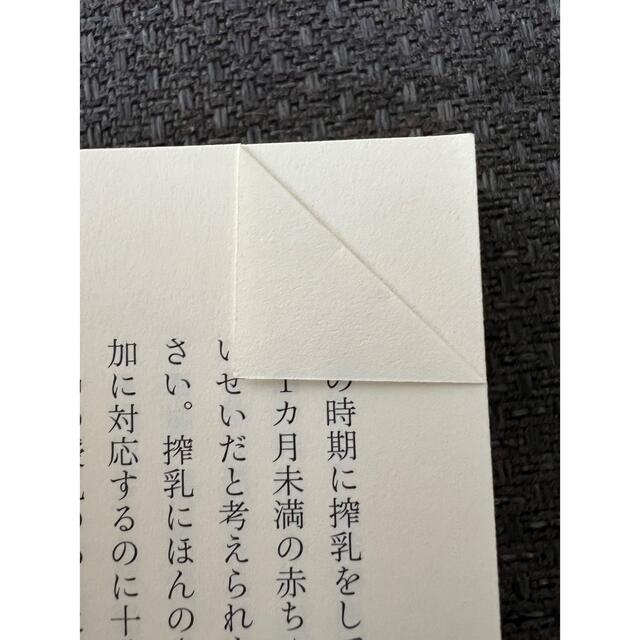 の時期に搾乳をして
1カ月未満の赤ち
いせいだと考えられ
さい。搾乳にほんの
加に対応するのに十